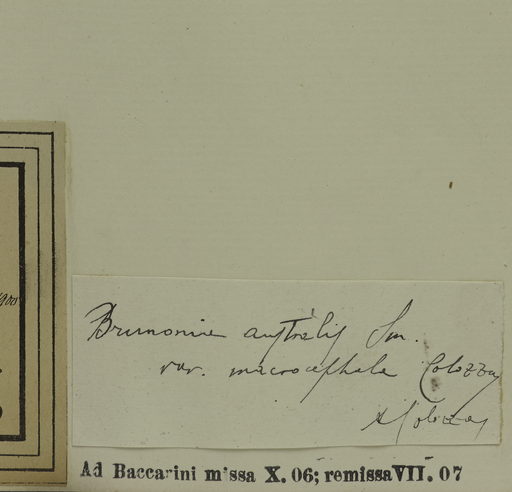 Brunonia australis Sm.
var. macrocephala Colozza
A Colozza
Ad Baccarini missa X. 06; remissa VII. 07